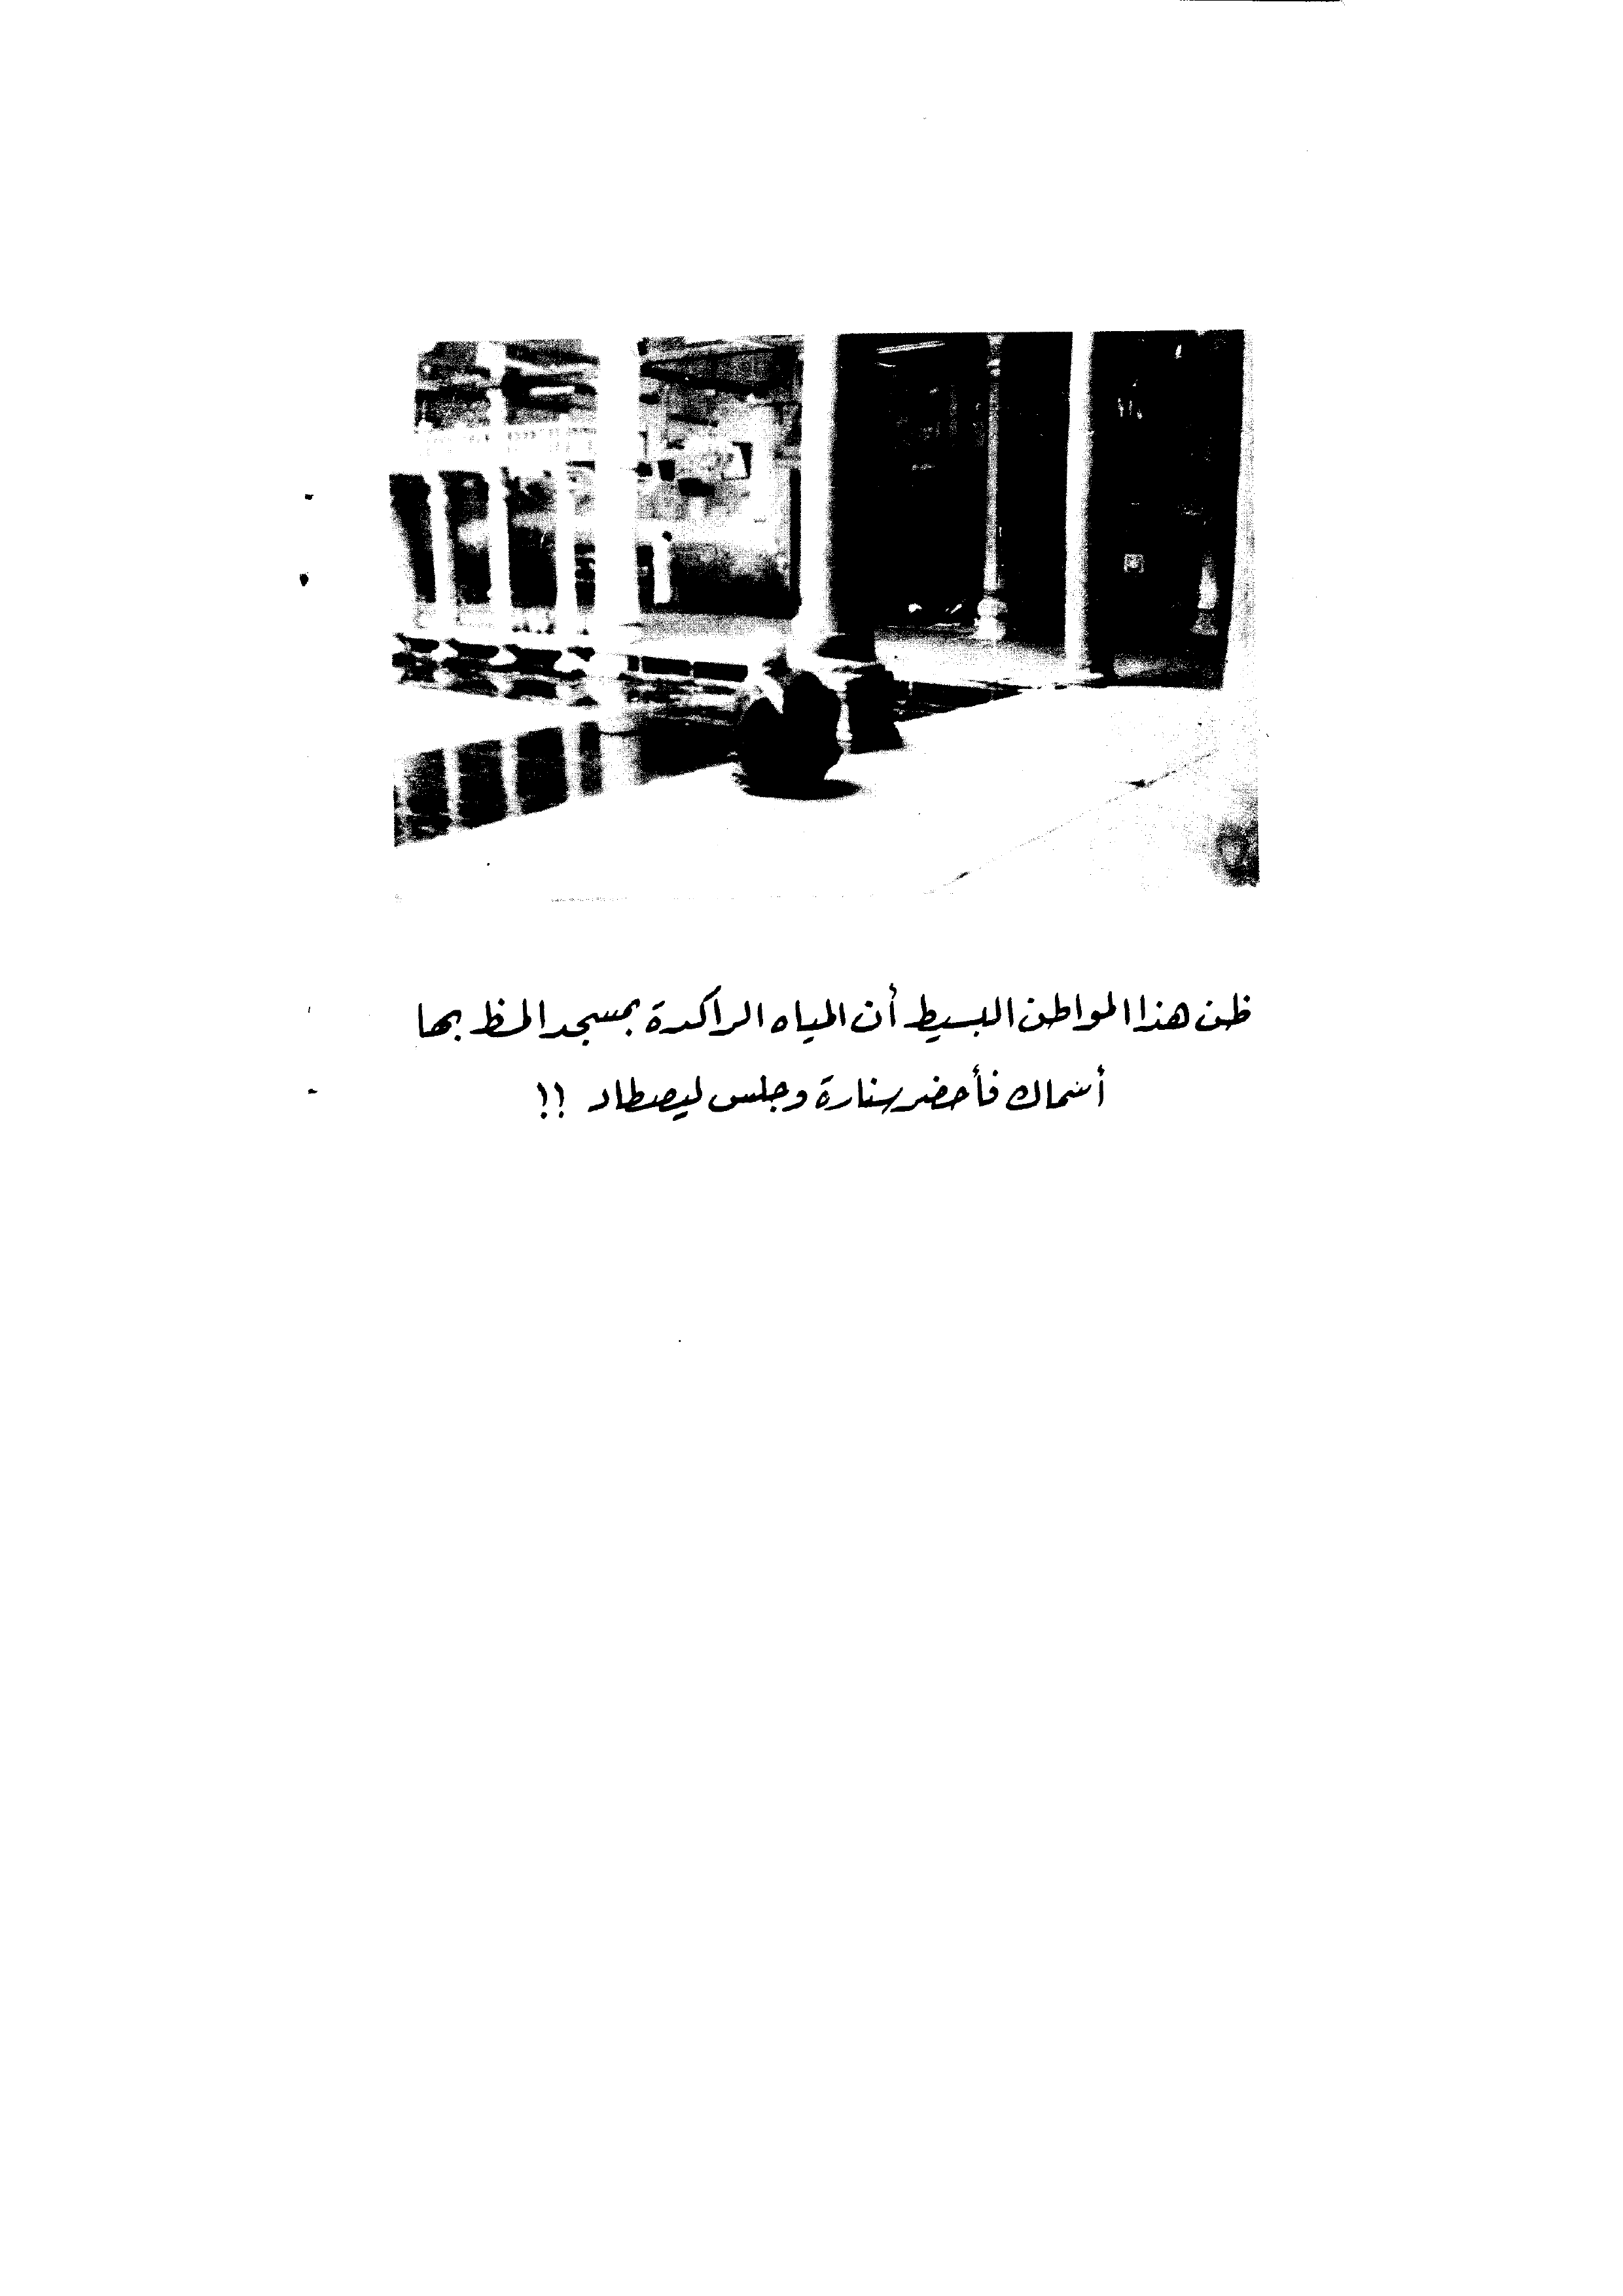 ظن هذا المواطن البسيط أن المياه الراكدة بمسجد الحظ بها
أسماك فأحضر سنارة وجلس ليصطاد !!